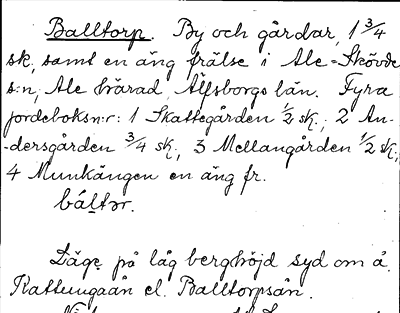 Balltorp. By och gårdar, 1 3/4
sk, samt en äng frälse i Ale-Skövde
s:n, Ale härad, Älfsborgs län. Fyra
jordeboksn:r: 1 Skattegården 1/2 sk.; 2 An-
-dersgården 3/4 sk.; 3 Mellangården 1/2 sk.;
4 Munkängen en äng fr.
báltər.
Läge på låg berghöjd syd om å.
Kattungaån el. Balltorpsån.